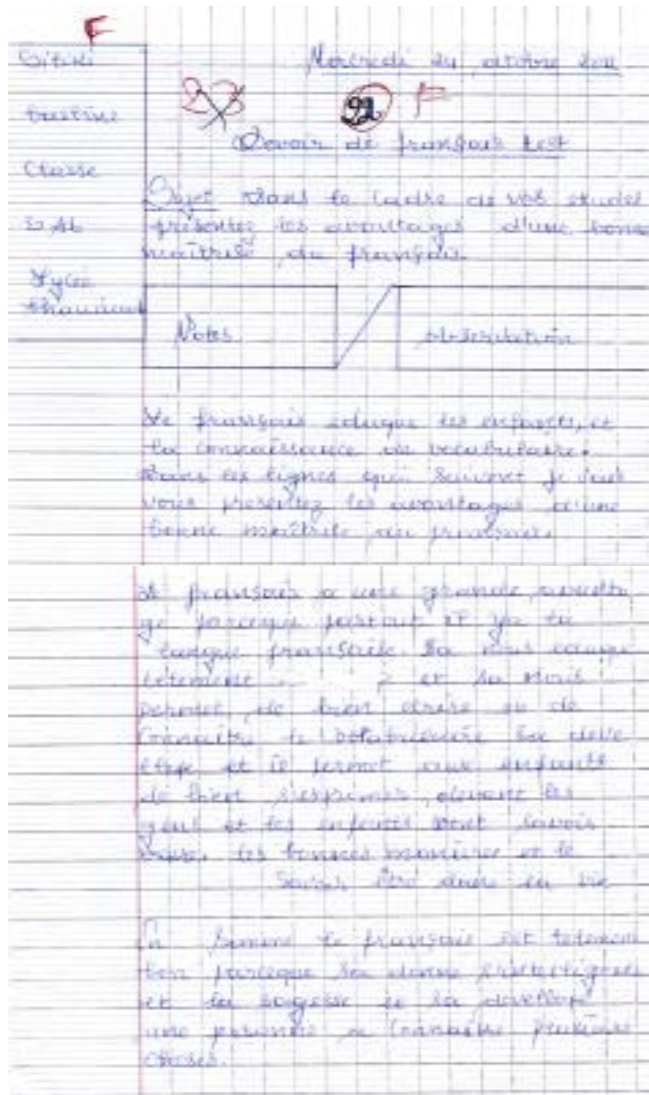 F
Mercredi 24 octobre
23
92 F
Justine
Devoir de français test
Classe
Sujet Dans le cadre de vos études
présentez les avantages d'une bonne
maîtrise du français.
Lycée
Notes
observation
Le français éduque les enfants, et
la connaissance du vocabulaire.
Dans les lignes qui suivent je vais
vous présentez les avantages d'une
bonne maîtrise du français.
Le français a une grande avanta
ge parceque partout il ya la
langue française. Sa nous
et sa nous
permet de bien écrire ou de
connaitre le vocabulaire
et il permet aux enfants
de bien s'exprimer, devant les
gens et les enfants vont savoir
les bonnes manières et le
savoir être dans la vie
En somme le français est telement
bon parceque sa donne
et la sagesse et sa develope
une personne a connaitre plusieurs
choses.